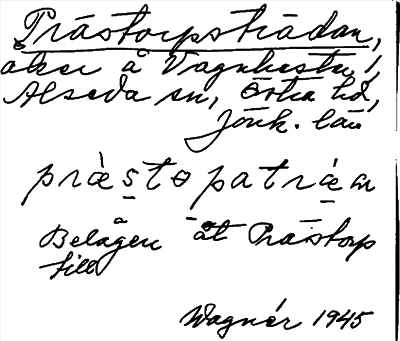 Prästorpsträdan,
åker å Vagnhester,
Alseda sn, Östra hd,
Jönk. län
præstopatræan
Belägen åt Prästorp
till
Wagnér 1945